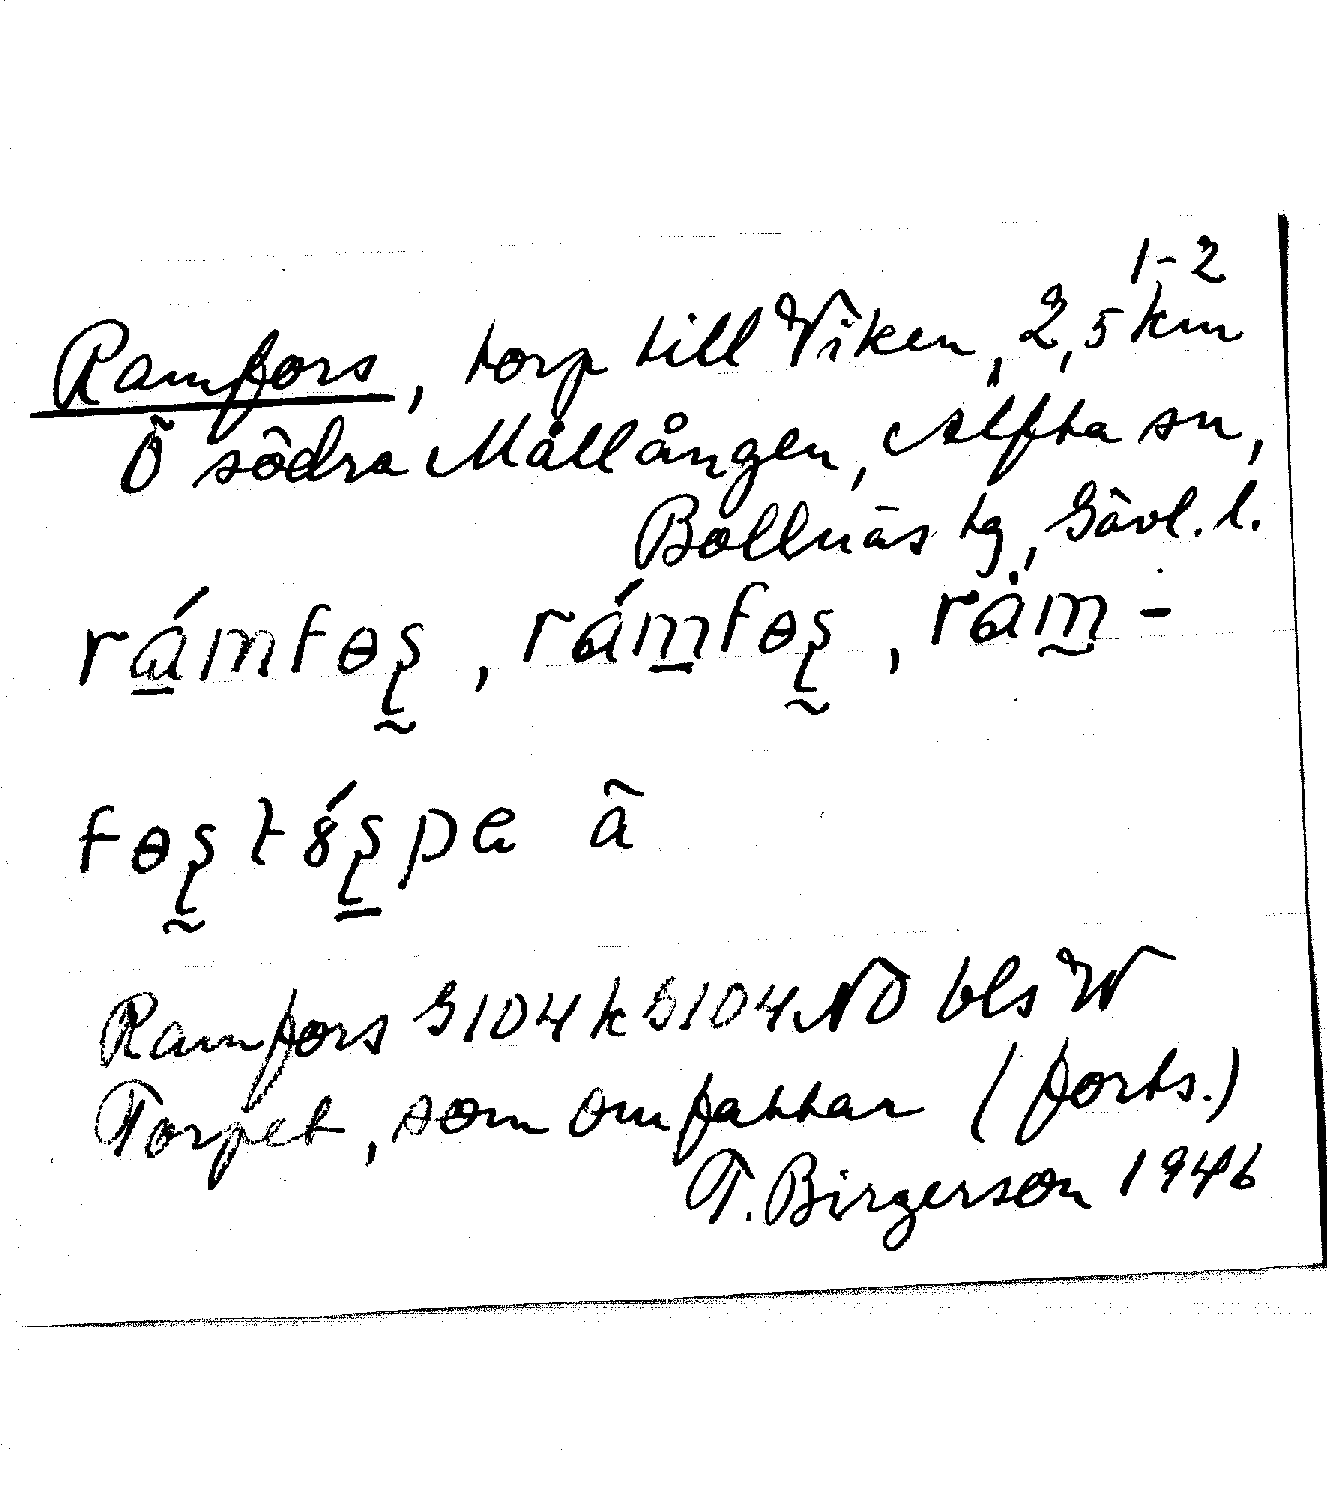 1-2
Ramfors, torp till Viken, 2,5 km
Ö södra Mållången, Alfta sn,
Bollnäs tg, Gävl. l.
Ramfors G104k G104NO bls W
Torpet, som omfattar (forts.)
T. Birgerson 1946